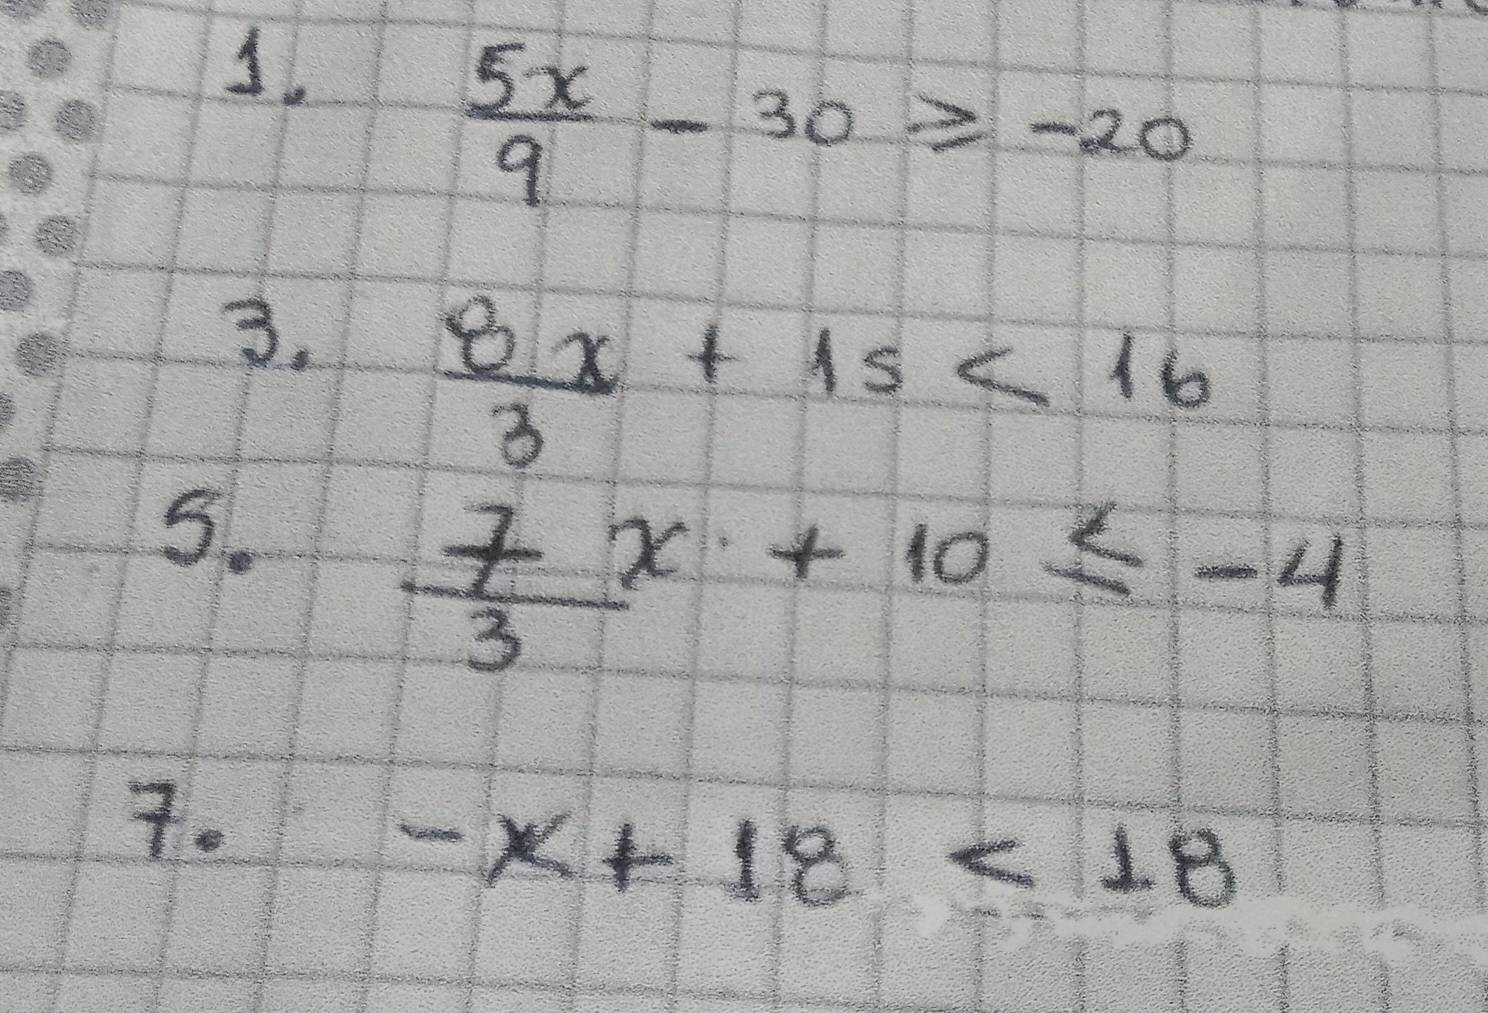 1. 5x/9 - 30 ≥ -20
3. 8x/3 + 15 < 16
5. 7/3 x + 10 ≤ -4
7. -x + 18 < 18